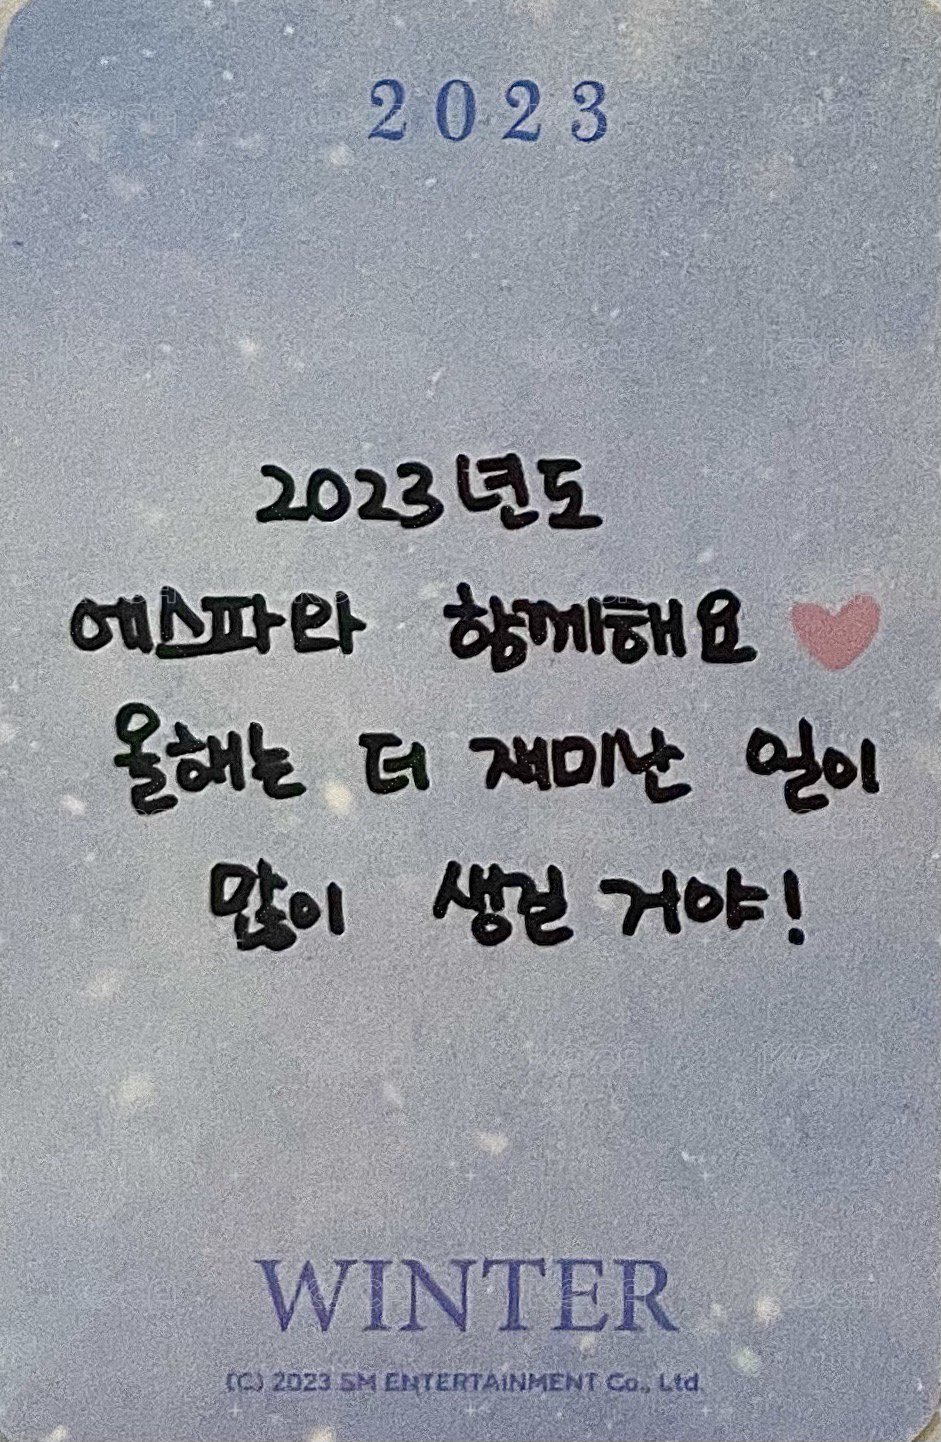 2023
2023년도
에스파와 함께해요
올해는 더 재미난 일이
많이 생길 거야!
WINTER
(C) 2023 SM ENTERTAINMENT Co., Ltd.